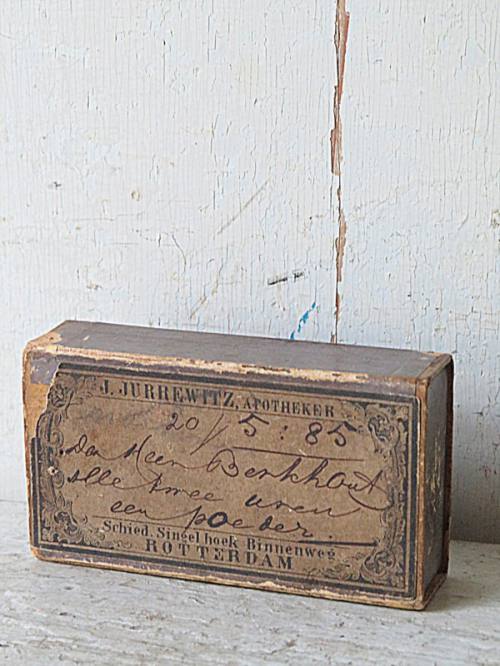 J. JURREWITZ, APOTHEKER
20/5:85
Den Heer Berkhout
alle twee uren
een poeder.
Schied. Singel hoek Binnenweg
ROTTERDAM